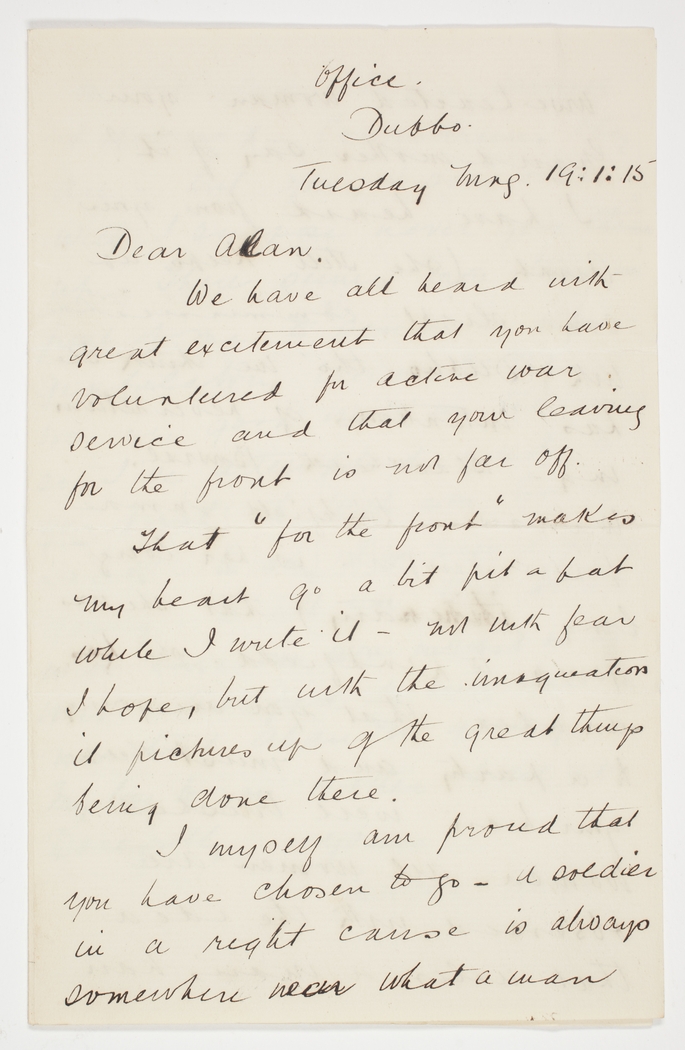 Office.
Dubbo.
Tuesday Mng. 19:1:15
Dear Alan.
We have all heard with
great excitement that you have
volunteered for active war
service and that your leaving
for the front is not far off.
That "for the front" makes
my heart go a bit pit a pat
while I write it – not with fear
I hope, but with the imagination
it pictures up of the great things
being done there.
I myself am proud that
you have chosen to go – a soldier
in a right cause is always
somewhere near what a man